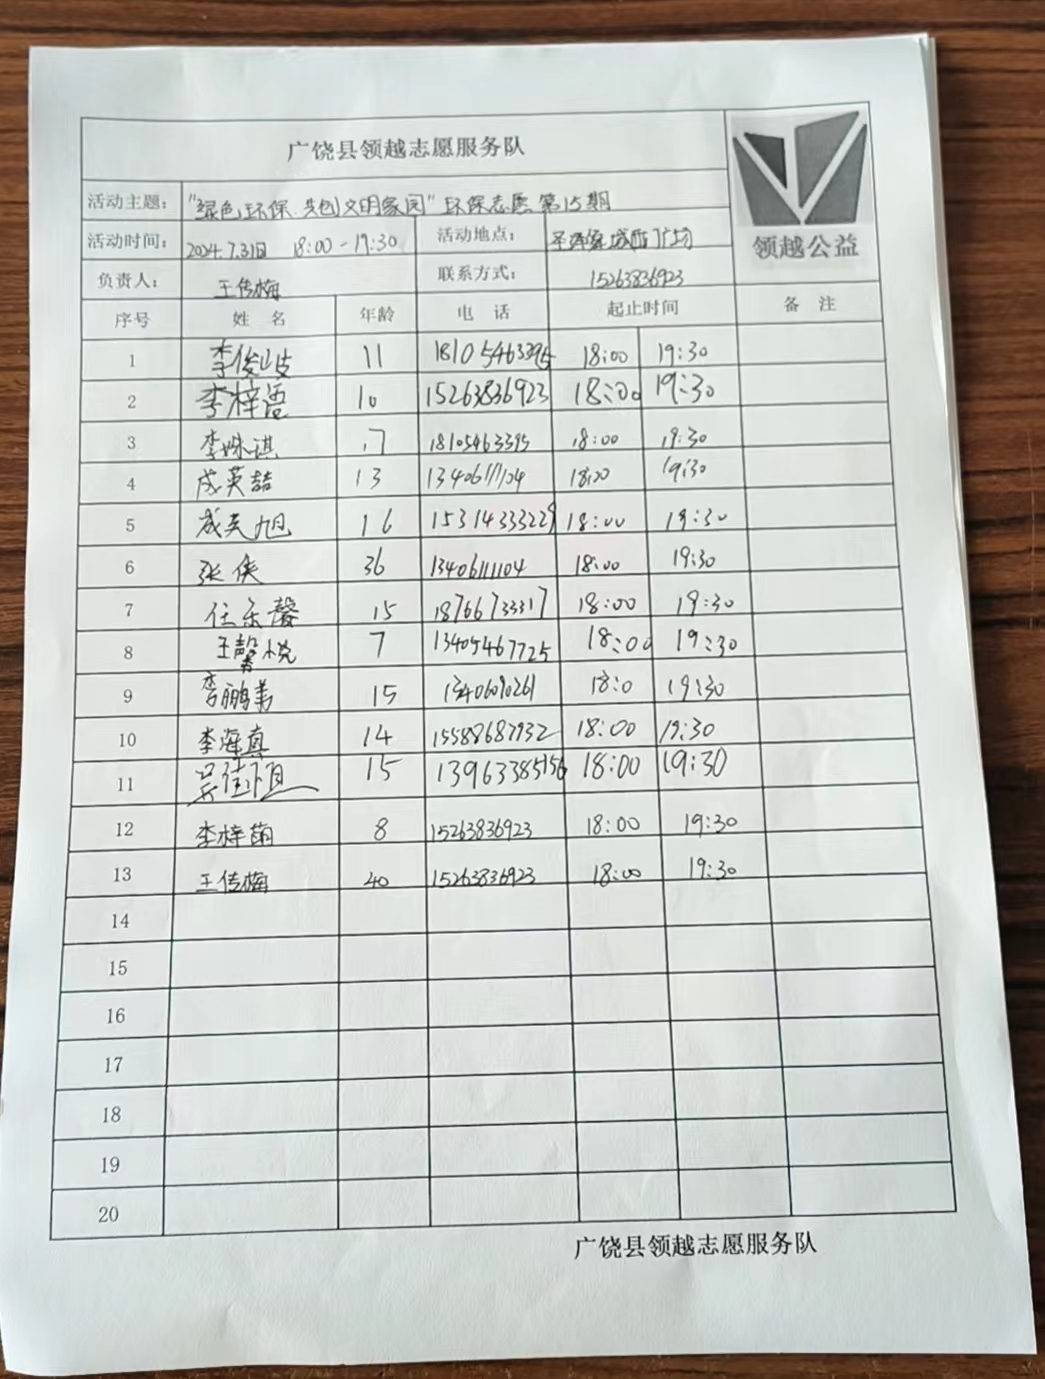 广饶县领越志愿服务队
领越公益
活动主题： "绿色环保 共创文明家园" 环保志愿 第15期
活动时间： 2024.7.31日 18:00-19:30 活动地点： 城西广场
负责人： 王传梅 联系方式： 15263836923
序号 姓名 年龄 电话 起止时间 备注
1 李俊岐 11 18105463395 18:00 19:30
2 李梓语 10 15263836923 18:00 19:30
3 李姝琪 17 18105463395 18:00 19:30
4 成英喆 13 13406111104 18:00 19:30
5 成英旭 16 15314333229 18:00 19:30
6 张侠 36 13406111104 18:00 19:30
7 任乐馨 15 18766733317 18:00 19:30
8 王馨悦 7 13405467725 18:00 19:30
9 李鹏美 15 13406090261 18:0 19:30
10 李海真 14 15588687932 18:00 19:30
11 吴佳 15 13963385156 18:00 19:30
12 李梓萌 8 15263836923 18:00 19:30
13 王传梅 40 15263836923 18:00 19:30
14
15
16
17
18
19
20
广饶县领越志愿服务队